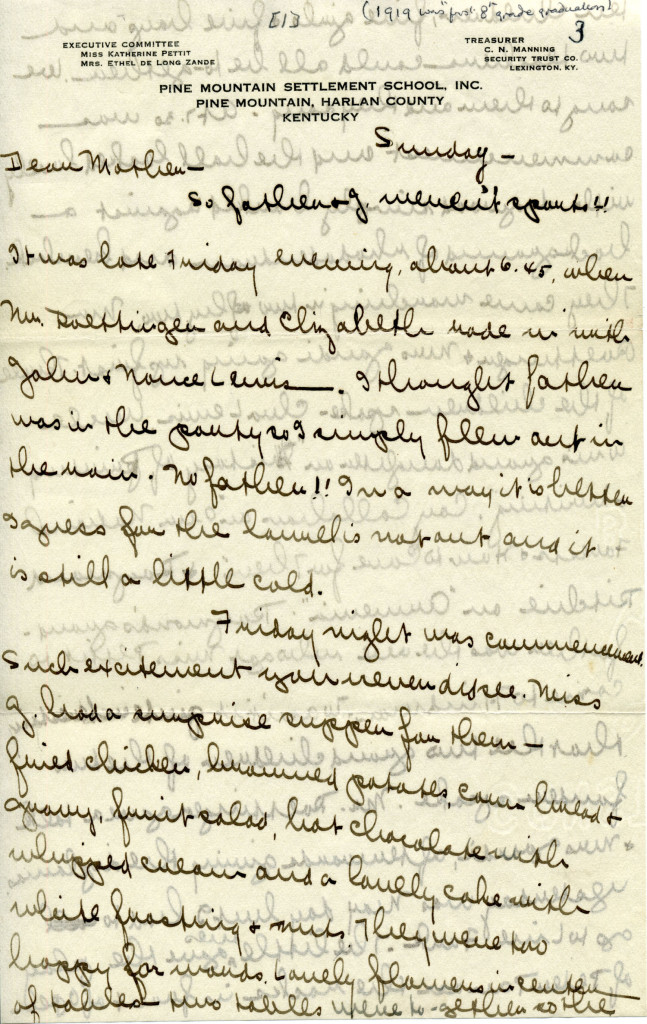 [1]
(1919 was first 8th grade graduation)
3
EXECUTIVE COMMITTEE
MISS KATHERINE PETTIT
MRS. ETHEL DE LONG ZANDE
TREASURER
C. N. MANNING
SECURITY TRUST CO.
LEXINGTON, KY.
PINE MOUNTAIN SETTLEMENT SCHOOL, INC.
PINE MOUNTAIN, HARLAN COUNTY
KENTUCKY
Sunday —
Dear Mother —
So father & J. weren't sports!!
It was late Friday evening, about 6.45, when
Mr. Roettinger and Elizabeth rode in with
John & Nance Lewis —. I thought father
was in the party so I simply flew out in
the rain. No father!! In a way it is better
I guess for the laurel is not out and it
is still a little cold.
Friday night was commencement.
Such excitement you never did see. Miss
G. had a surprise supper for them —
fried chicken, browned potatoes, corn bread &
gravy, fruit salad, hot chocolate with
whipped cream and a lovely cake with
white frosting & nuts. They were too
happy for words. Lovely flowers in center
of tables — two tables were together so the